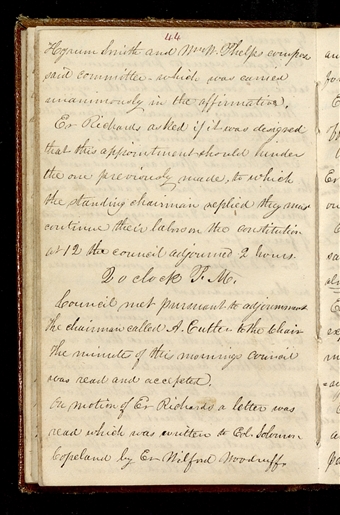 44
Hyrum Smith and Wm W. Phelps compose
said committee. which was carried
unanimously in the affirmative.
Er Richards asked if it was designed
that this appointment should hinder
the one previously made, to which
the standing chairman replied they must
continue their labors on the constitution
at 12 the council adjourned 2 hours.
2 o clock P. M.
Council met pursuant to adjournment
The chairman called A. Cutler to the Chair
The minute of the mornings council
was read and accepted.
On motion of Er Richards a letter was
read which was written to Ed. Solomon
Copeland by Er Wilford Woodruff.